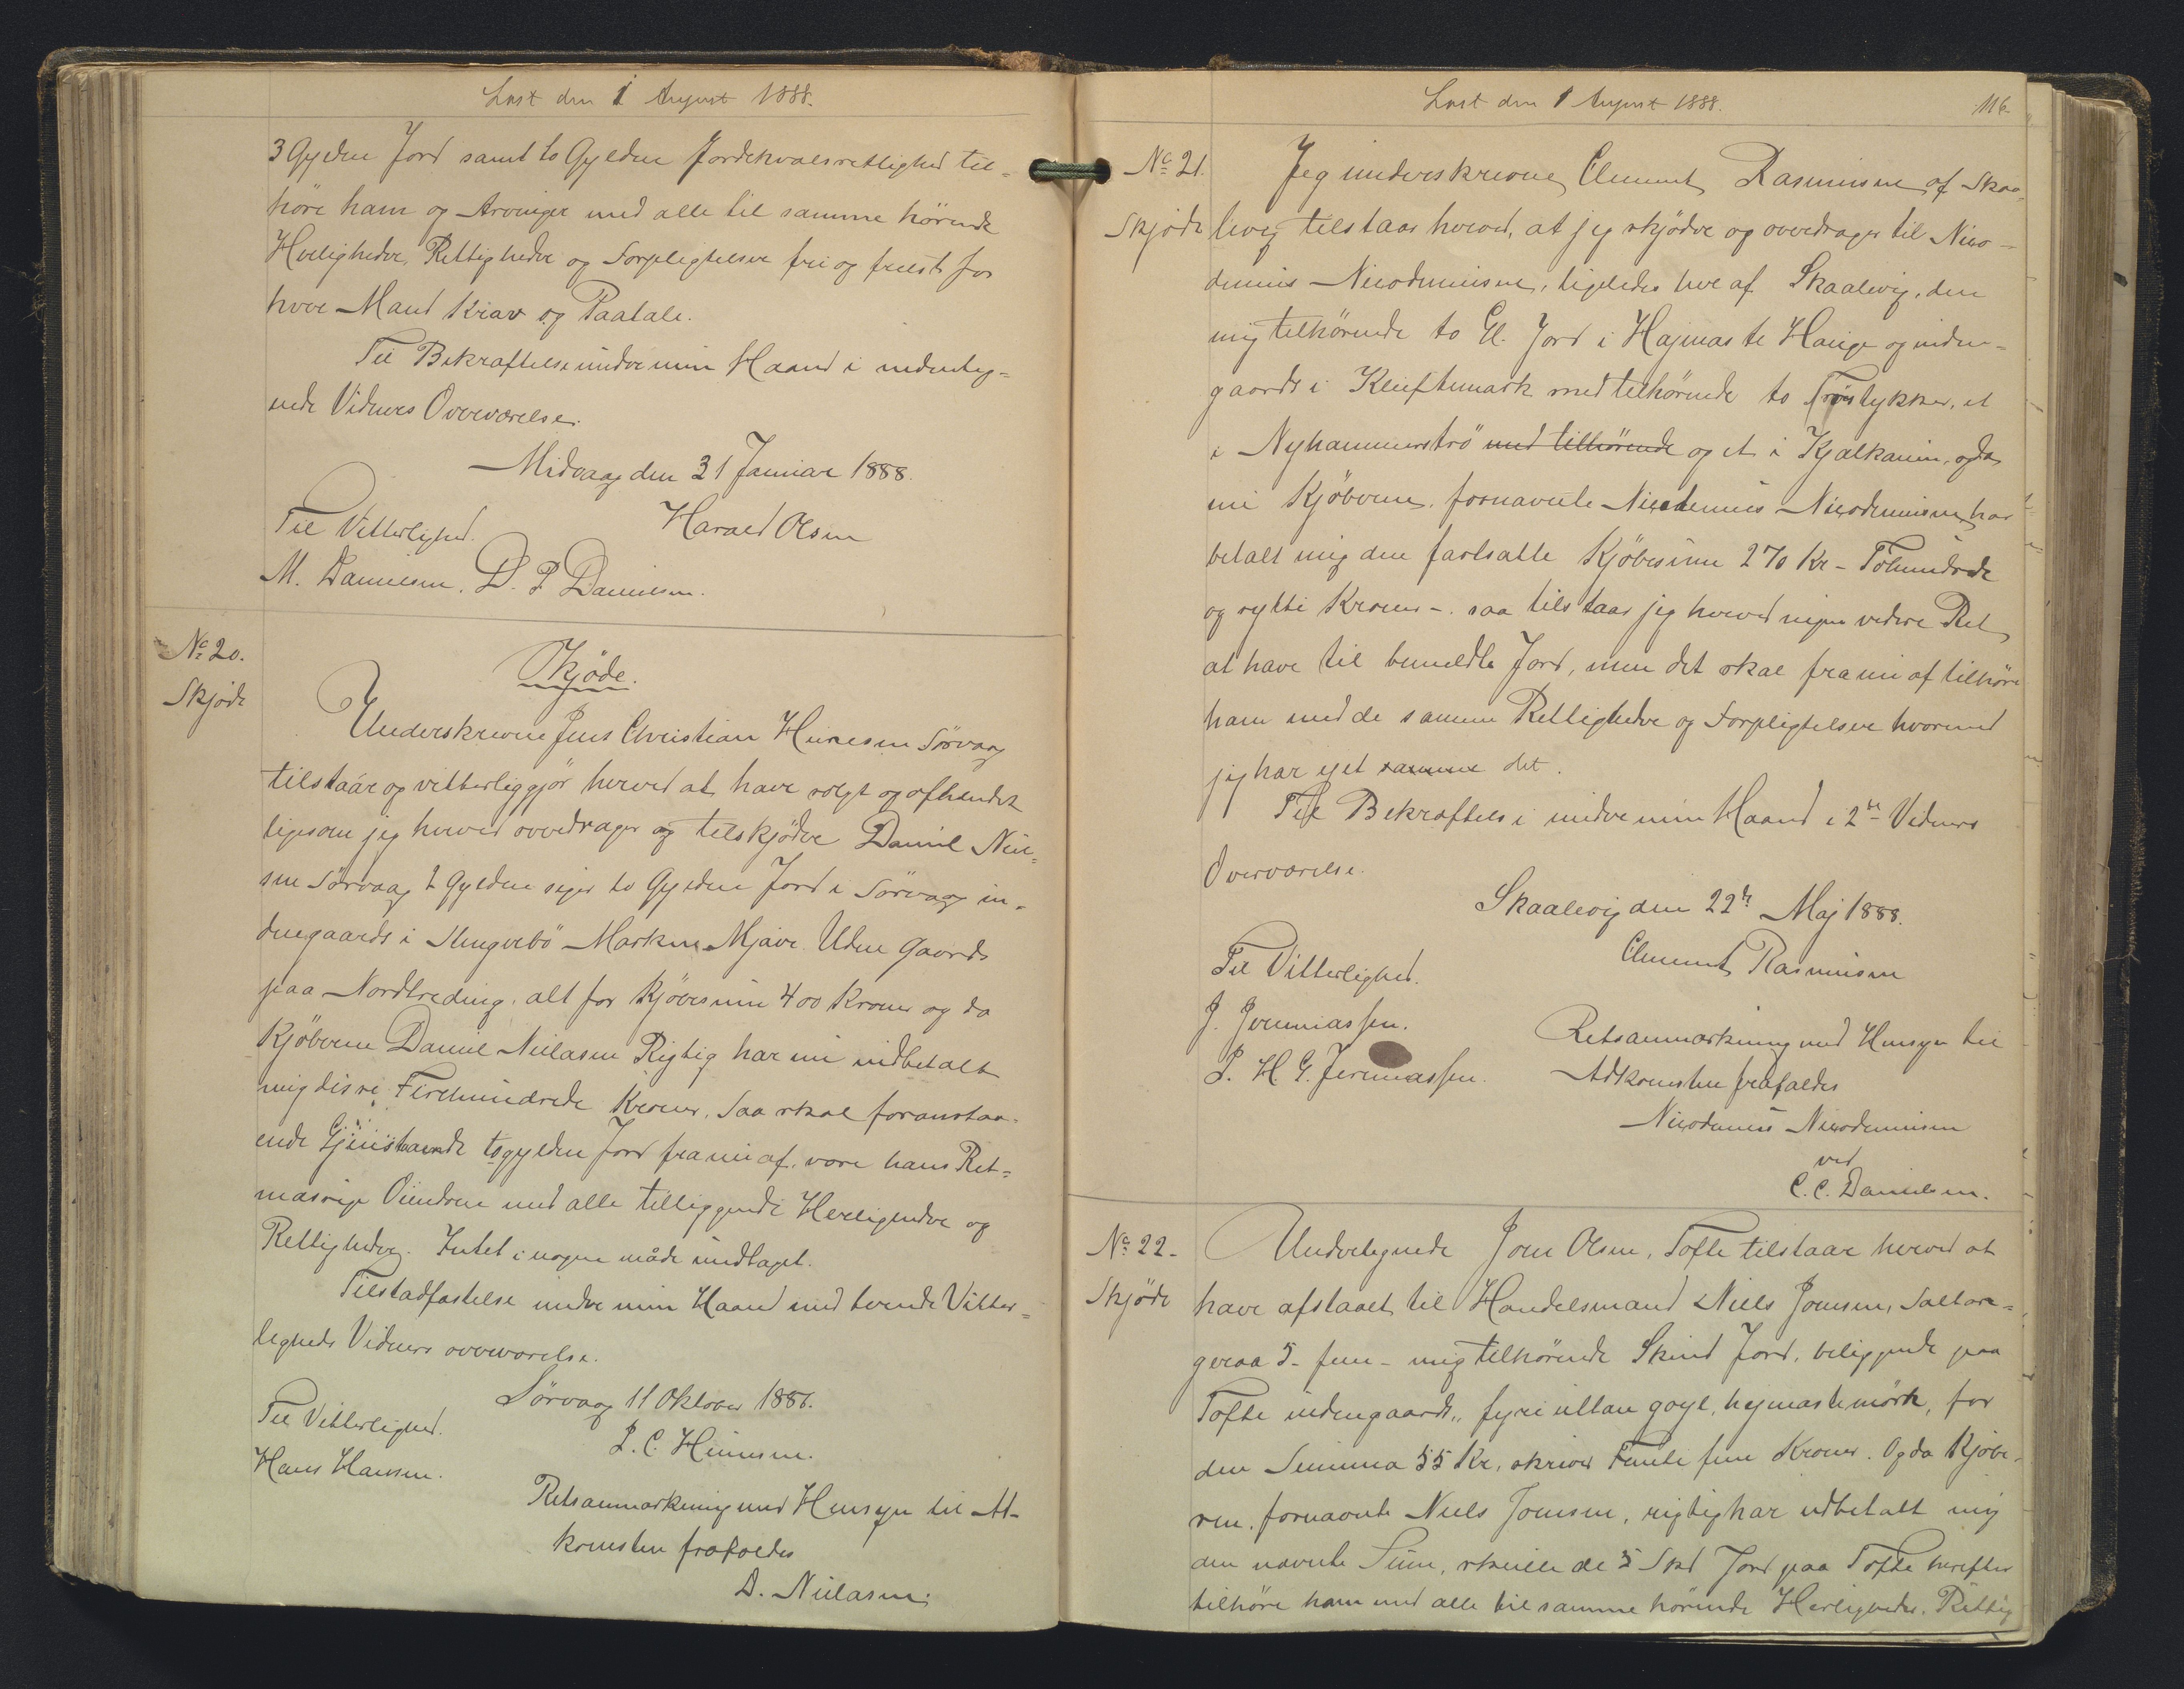 Læst den 1 August 1888.
3 Gylden Jord samt to Gylden Jordehvalsrettighed til-
høre ham og Arvinger med alle til samme hørende
Herligheder, Rettigheder og Forpligtelser fri og frelst for
hver Mand Krav og Paatale.
Til Bekræftelse under min Haand i undenteg-
nede Vidners Overværelse.
Midvaag den 31 Januar 1888.
Til Vitterlighed.
Harald Olsen
M. Danielsen. D. P. Danielsen.
No 20.
Skjøde
Skjøde.
Underskrevne Jens Christian Heinesen Sørvaag
tilstaar og vitterliggjør herved at have solgt og afhændet
ligesom jeg herved overdrager og tilskjøder Daniel Niel-
sen Sørvaag 2 Gylden siger to Gylden Jord i Sørvaag in-
dengaards i Marken Mjave. Uden Gaards
paa Nordtreding, alt for Kjøbesum 400 Kroner og da
Kjøberen Daniel Nielasen Rigtig har nu udbetalt
mig disse Firehundrede Kroner, saa skal foranstaa-
ende Gjenstaende to gylden Jord fra nu af, være hans Ret-
mæsige Eiendom med alle tilliggende Herligheder og
Rettigheder. Intet i nogen måde undtaget.
Tilstadfæstelse under min Haand med tvende Vitter-
ligheds Vidners overværelse.
Sørvaag 11 Oktober 1886.
Til Vitterlighed.
J. C. Heinesen.
Hans Hansen.
Retsanmærkning med Hensyn til Ad-
komsten frafaldes
D. Nielasen.
Læst den 1 August 1888.
116.
No 21.
Skjøde
Jeg underskrevne Clement Rasmussen af Skaa-
levig tilstaar herved, at jeg skjøder og overdrager til Nico-
demus Nicodemusen, ligeledes her af Skaalevig, den
mig tilhørende to Gl. Jord i Hajmaste Hauge og inden-
gaards i Kluftemark med tilhørende to Trøstykker, et
i Nyhammerstrø med tilhørende og et i Kjalkanum, og da
nu Kjøberen, fornævnte Nicodemus Nicodemusen har
betalt mig den fastsatte Kjøbesum 270 Kr - Tohundrede
og sytti Kroner -. saa tilstaar jeg herved ingen videre Ret
at have til bemeldte Jord, men det skal fra nu af tilhøre
ham med de samme Rettigheder og Forpligtelser hvormed
jeg har ejet samme det.
Til Bekræftelse under min Haand i 2de Vidners
Overværelse.
Skaalevig den 22de Maj 1888.
Clement Rasmusen
Til Vitterlighed.
J. Joensiassen.
J. H. G. Jeremiassen.
Retsanmærkning med Hensyn til
Adkomsten frafaldes
Nicodemus Nicodemusen
ved
C. C. Danielsen.
No 22.
Skjøde
Undertegnede Joen Olsen, Tofte tilstaar herved at
have afstaaet til Handelsmand Niels Joensen, Saltan-
geraa 5 - fem - mig tilhørende Skind Jord, beliggende paa
Tofte indengaards, fyri uttan goyl, heymastemørk, for
den Summa 55 Kr, skriver Femte fem Kroner. Og da Kjøbe-
ren, fornævnte Niels Joensen, rigtig har udbetalt mig
den nævnte Sum, skulle de 5 Skd Jord paa Tofte herefter
tilhøre ham med alle til samme hørende Herligheder, Rettig